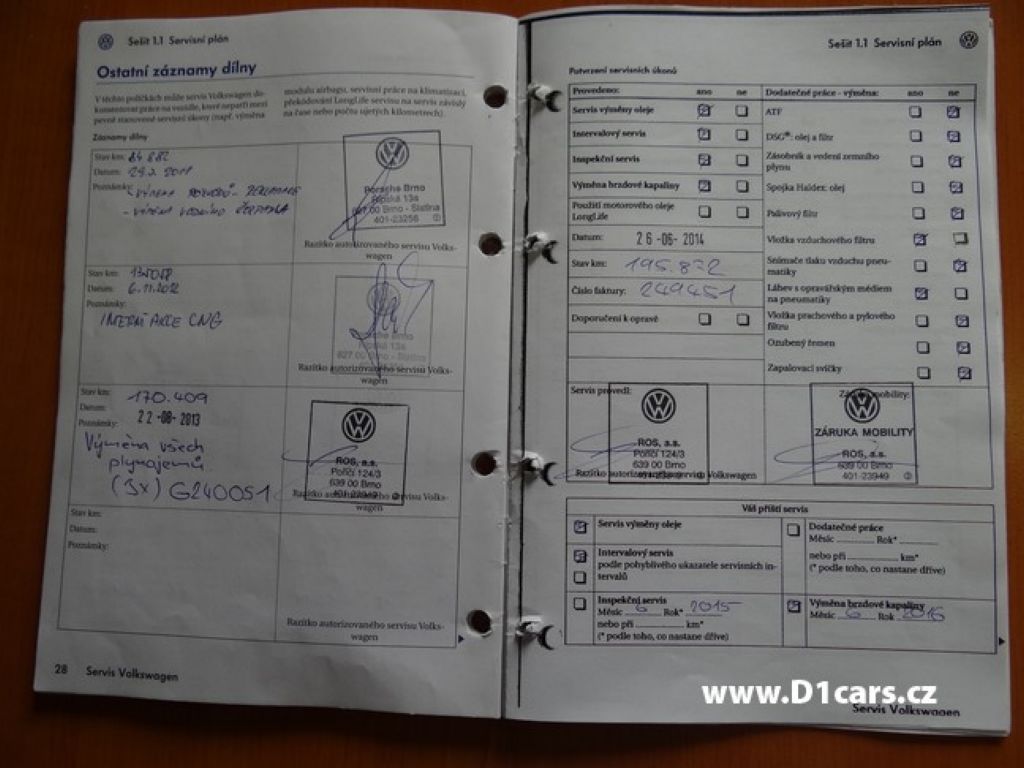 Sešit 1.1 Servisní plán
Ostatní záznamy dílny
V těchto políčkách může servis Volkswagen do-
kumentovat práce na vozidle, které nepatří mezi
pevně stanovené servisní úkony (např. výměna
modulu airbagu, servisní práce na klimatizaci,
překódování LongLife servisu na servis závislý
na čase nebo počtu ujetých kilometrech).
Záznamy dílny
Stav km: 84 882
Datum: 2011
Poznámky:
- VÝMĚNA ROZVODŮ
- VÝMĚNA VODNÍHO ČERPADLA
Porsche Brno
Řipská 13a
627 00 Brno - Slatina
401-23256
Razítko autorizovaného servisu Volks-
wagen
Stav km:
Datum: 6.11.2012
Poznámky:
INTERNÍ AKCE CNG
Řipská 13a
627 00 Brno - Slatina
Razítko autorizovaného servisu Volks-
wagen
Stav km: 170.409
Datum: 22-08-2013
Poznámky:
Výměna všech
plynojemů
(3x) G240051
ROS, a.s.
Poříčí 124/3
639 00 Brno
401-23949
Razítko autorizovaného servisu Volks-
wagen
Stav km:
Datum:
Poznámky:
Razítko autorizovaného servisu Volks-
wagen
28 Servis Volkswagen
Sešit 1.1 Servisní plán
Potvrzení servisních úkonů
Provedeno: ano ne
Servis výměny oleje
Intervalový servis
Inspekční servis
Výměna brzdové kapaliny
Použití motorového oleje
LongLife
Datum: 26-06-2014
Stav km: 195.872
Číslo faktury: 249451
Doporučení k opravě
Dodatečné práce - výměna: ano ne
ATF
DSG®: olej a filtr
Zásobník a vedení zemního
plynu
Spojka Haldex: olej
Palivový filtr
Vložka vzduchového filtru
Snímače tlaku vzduchu pneu-
matiky
Láhev s opravářským médiem
na pneumatiky
Vložka prachového a pylového
filtru
Ozubený řemen
Zapalovací svíčky
Servis provedl:
ROS, a.s.
Poříčí 124/3
639 00 Brno
Razítko autorizovaného servisu Volkswagen
Záruka mobility:
ZÁRUKA MOBILITY
ROS, a.s.
639 00 Brno
401-23949
Váš příští servis
Servis výměny oleje
Intervalový servis
podle pohyblivého ukazatele servisních in-
tervalů
Inspekční servis
Měsíc 6 Rok* 2015
nebo při km*
(* podle toho, co nastane dříve)
Dodatečné práce
Měsíc Rok*
nebo při km*
(* podle toho, co nastane dříve)
Výměna brzdové kapaliny
Měsíc 6 Rok 2016
www.D1cars.cz
Servis Volkswagen